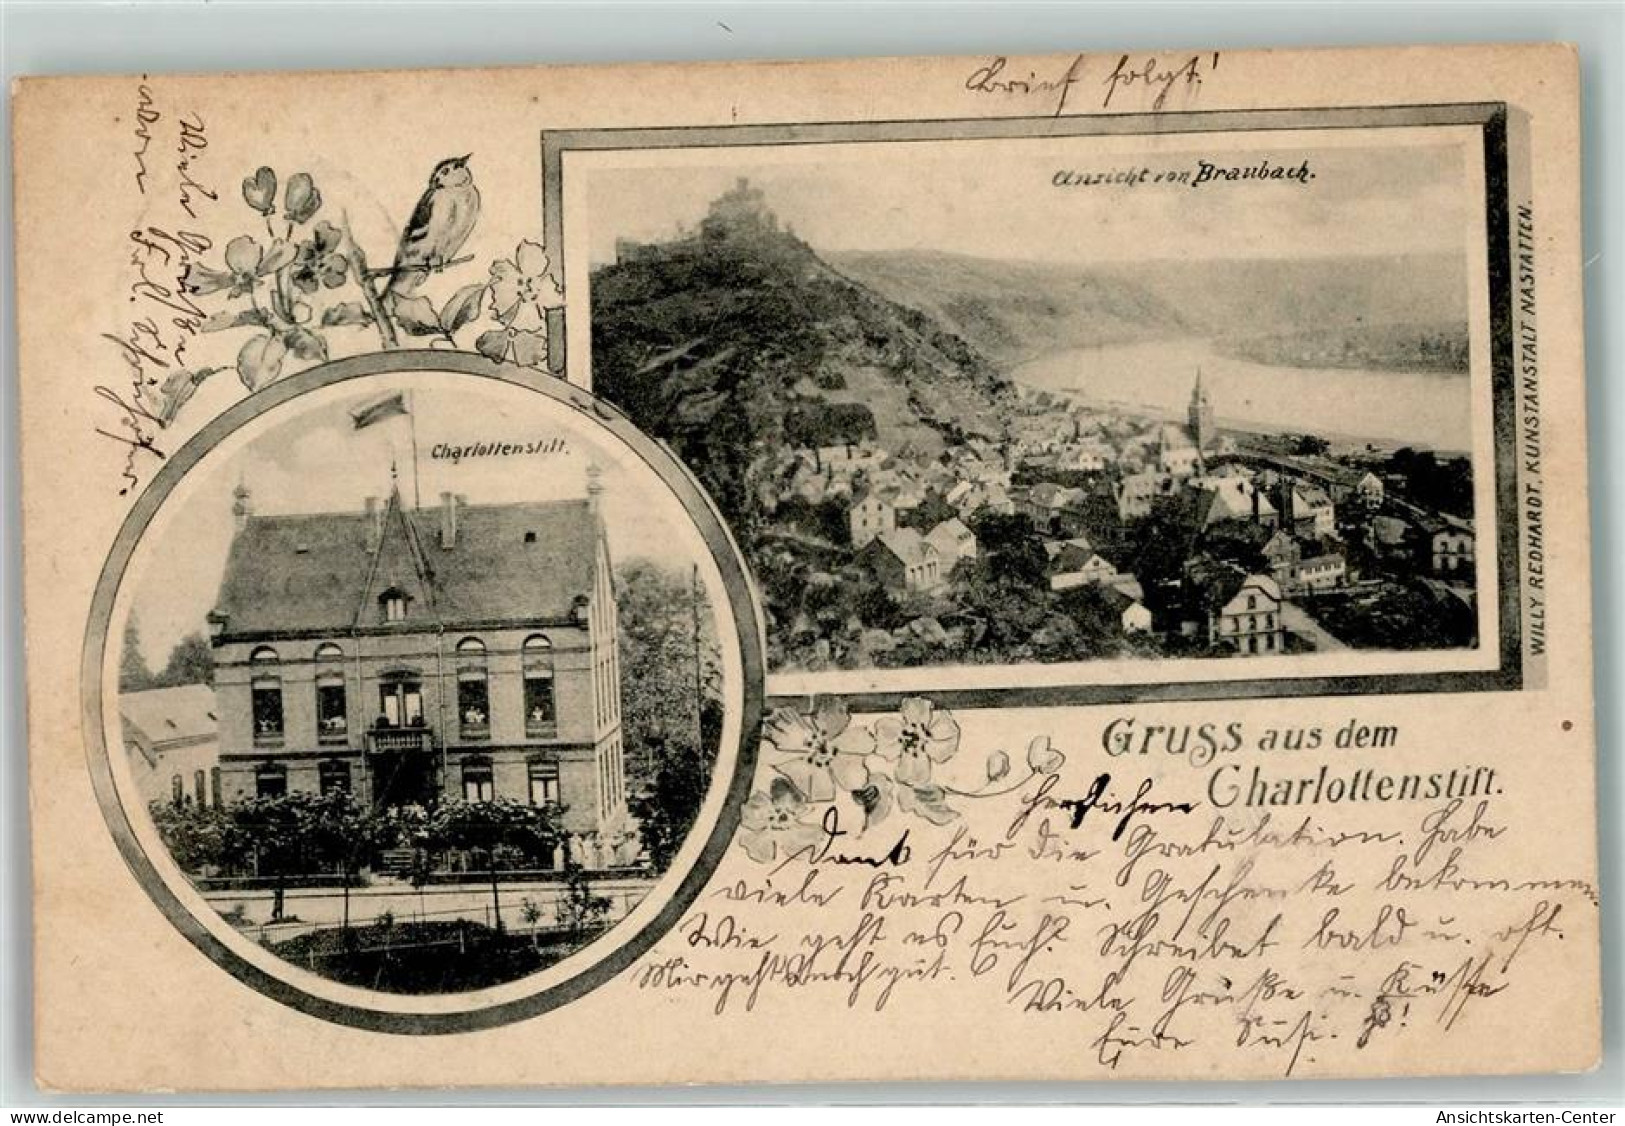 Brief folgt!
Viele Grüße
von Frl. Schäfer.
Ansicht von Braubach.
Charlottenstift.
WILLY REDHARDT, KUNSTANSTALT NASTÄTTEN.
Gruss aus dem
Charlottenstift.
Herzlichen
Dank für die Gratulation. Habe
viele Karten u. Geschenke bekommen.
Wie geht es Euch? Schreibet bald u. oft.
Mir geht's noch gut.
Viele Grüße u. Küsse
Eure Susi.
delcampe.net
Ansichtskarten-Center